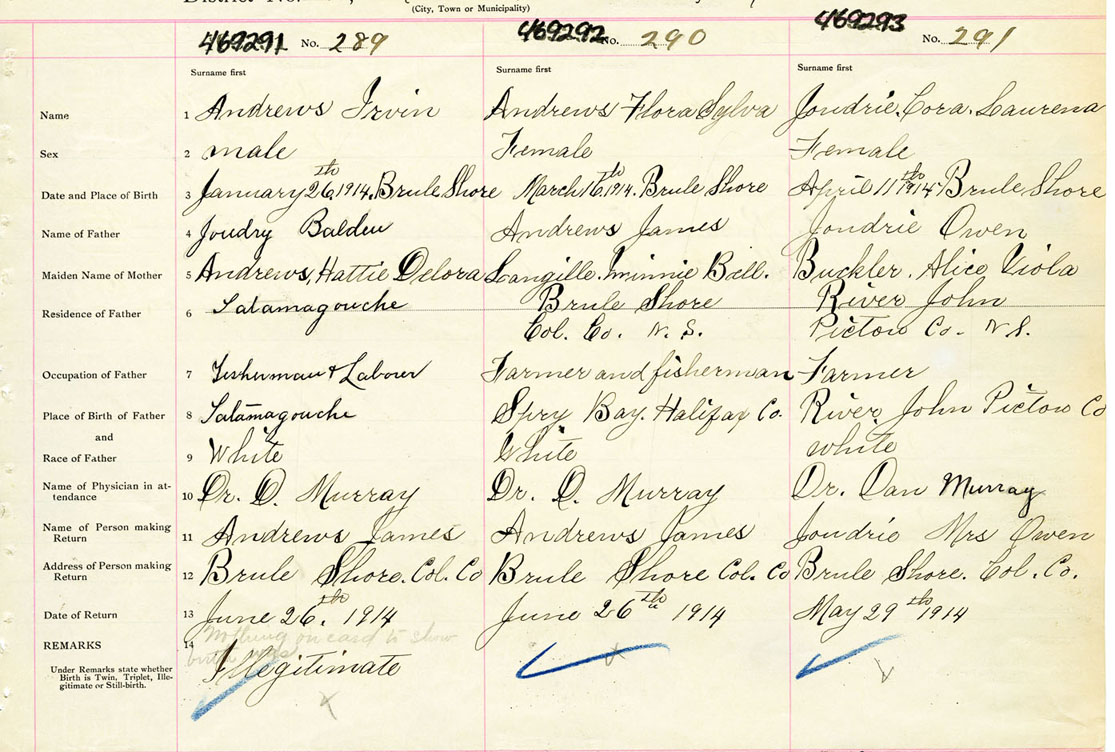 District No.
(City, Town or Municipality)
469291 No. 289 469292 No. 290 469293 No. 291
Surname first Surname first Surname first
Name 1 Andrews Irvin Andrews Flora Sylva Joudrie. Cora. Laurena
Sex 2 male Female Female
Date and Place of Birth 3 January 26th 1914. Brule Shore March 16th 1914. Brule Shore April 11th 1914 Brule Shore
Name of Father 4 Joudry Balden Andrews James Joudrie Owen
Maiden Name of Mother 5 Andrews, Hattie Delora Langille. Minnie Bell. Buckler. Alice Viola
Residence of Father 6 Tatamagouche Brule Shore River John
Col. Co. N. S. Pictou Co. N S.
Occupation of Father 7 Fisherman & Labourer Farmer and fisherman Farmer
Place of Birth of Father 8 Tatamagouche Spry Bay. Halifax Co. River John Pictou Co
and
Race of Father 9 White White white
Name of Physician in at-
tendance 10 Dr. D. Murray Dr. D. Murray Dr. Dan Murray
Name of Person making
Return 11 Andrews James Andrews James Joudrie Mrs Owen
Address of Person making
Return 12 Brule Shore. Col. Co Brule Shore Col. Co Brule Shore. Col. Co.
Date of Return 13 June 26th. 1914 June 26th 1914 May 29th 1914
REMARKS 14 Nothing on card to show
birth was
Illegitimate
Under Remarks state whether
Birth is Twin, Triplet, Ille-
gitimate or Still-birth.